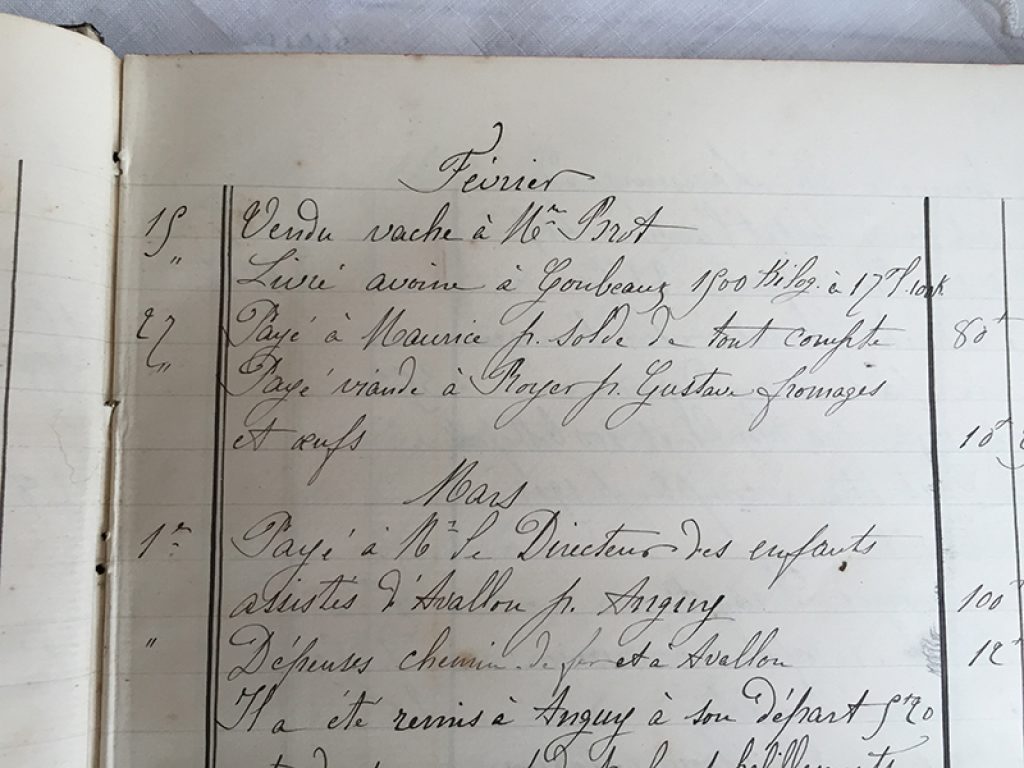 Février
15 Vendu vache à Mr Brot
" Livré avoine à Goubeaux 1500 Kilog. à 17f. les % k
27 Payé à Maurice pr. solde de tout compte 80f
" Payé viande à Royer pr. Gustave fromages
et œufs 10f
Mars
1er Payé à Mr le Directeur des enfants
assistés d'Avallon pr. Anguy 100f
" Dépenses chemin de fer et à Avallon 12f
Il a été remis à Anguy à son départ 5f20